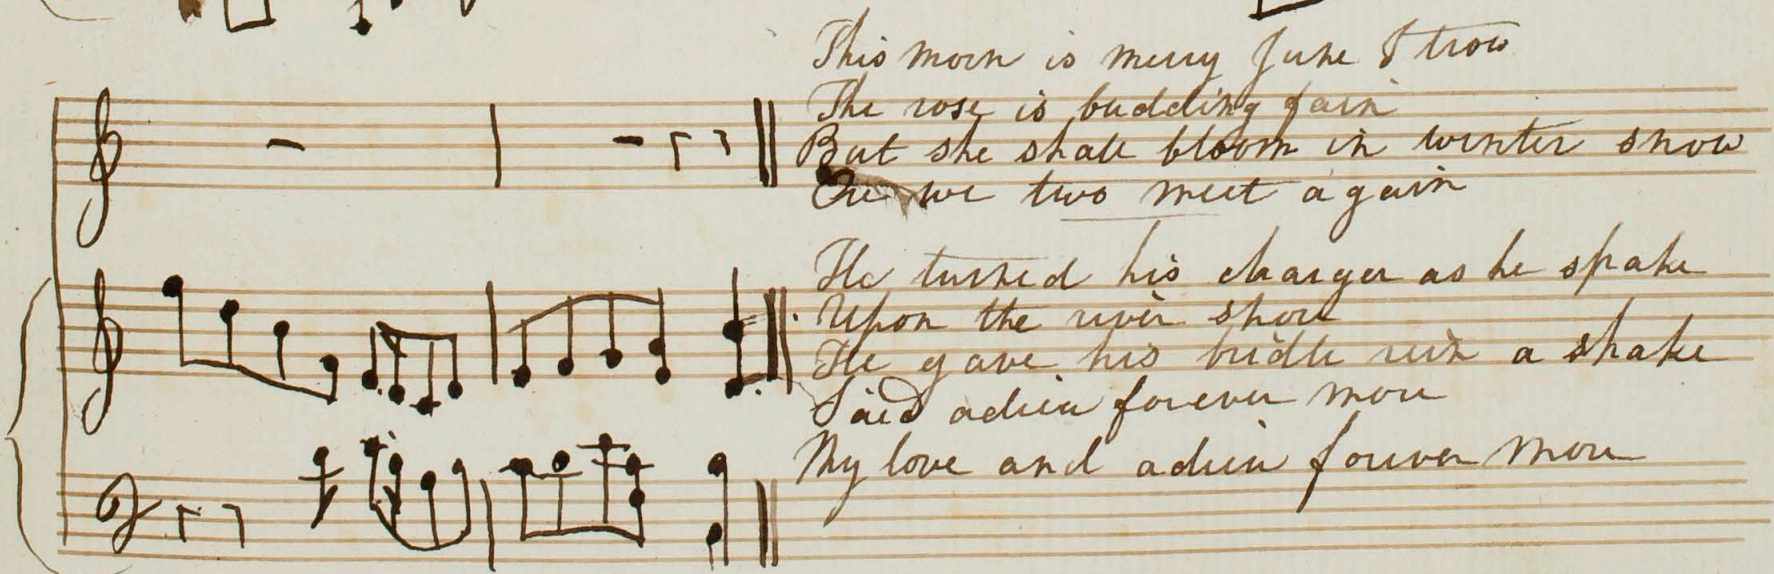 This morn is merry June I trow
The rose is budding fain
But she shall bloom in winter snow
Ere we two meet again
He turned his charger as he spake
Upon the river shore
He gave his bridle rein a shake
Said adieu forever more
My love and adieu forever more